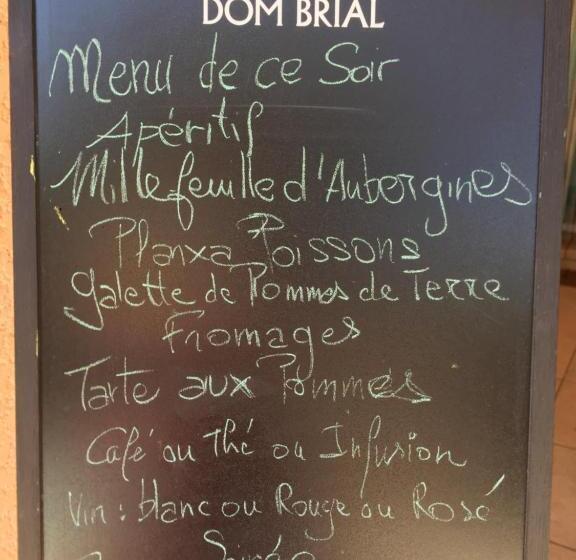 DOM BRIAL
Menu de ce Soir
Apéritif
Millefeuille d'Aubergines
Planxa Poissons
galette de Pommes de Terre
Fromages
Tarte aux Pommes
Café ou Thé ou Infusion
Vin : blanc ou Rouge ou Rosé
Soirée